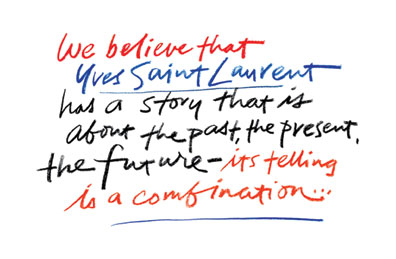 We believe that
Yves Saint Laurent
has a story that is
about the past, the present,
the future – its telling
is a combination...